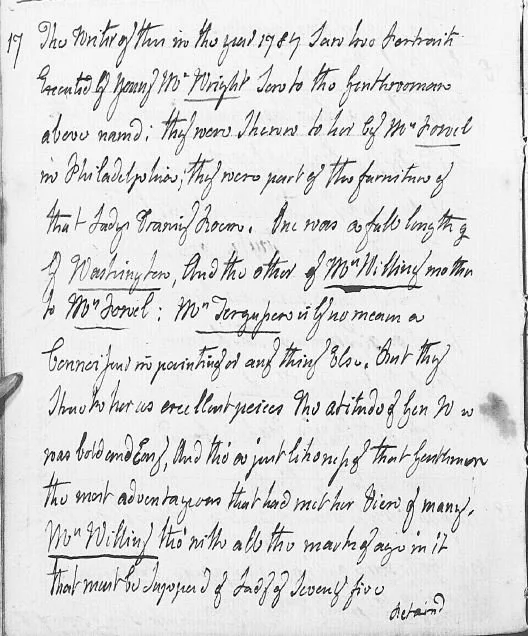 17 The writer of this in the year 1787 Saw two Portraits
Executed by young Mr Wright Son to the Gentlewoman
above namd; they were Shewn to her by Mrs Powel
in Philadelphia; they were part of the furniture of
that Ladys Drawing Room. One was a full length
of Washington, And the other of Mrs Willing mother
to Mrs Powel: Mrs is by no means a
Connoisseur in painting or any thing Else. But they
Struck her as excellent peices The atitude of Gen W
was bold and Easy, And tho' a just likeness of that Gentleman
the most advantageous that had met her View of many.
Mrs Willing tho' with all the marks of age in it
that must be Supposed of Lady of Seventy five
Retaind